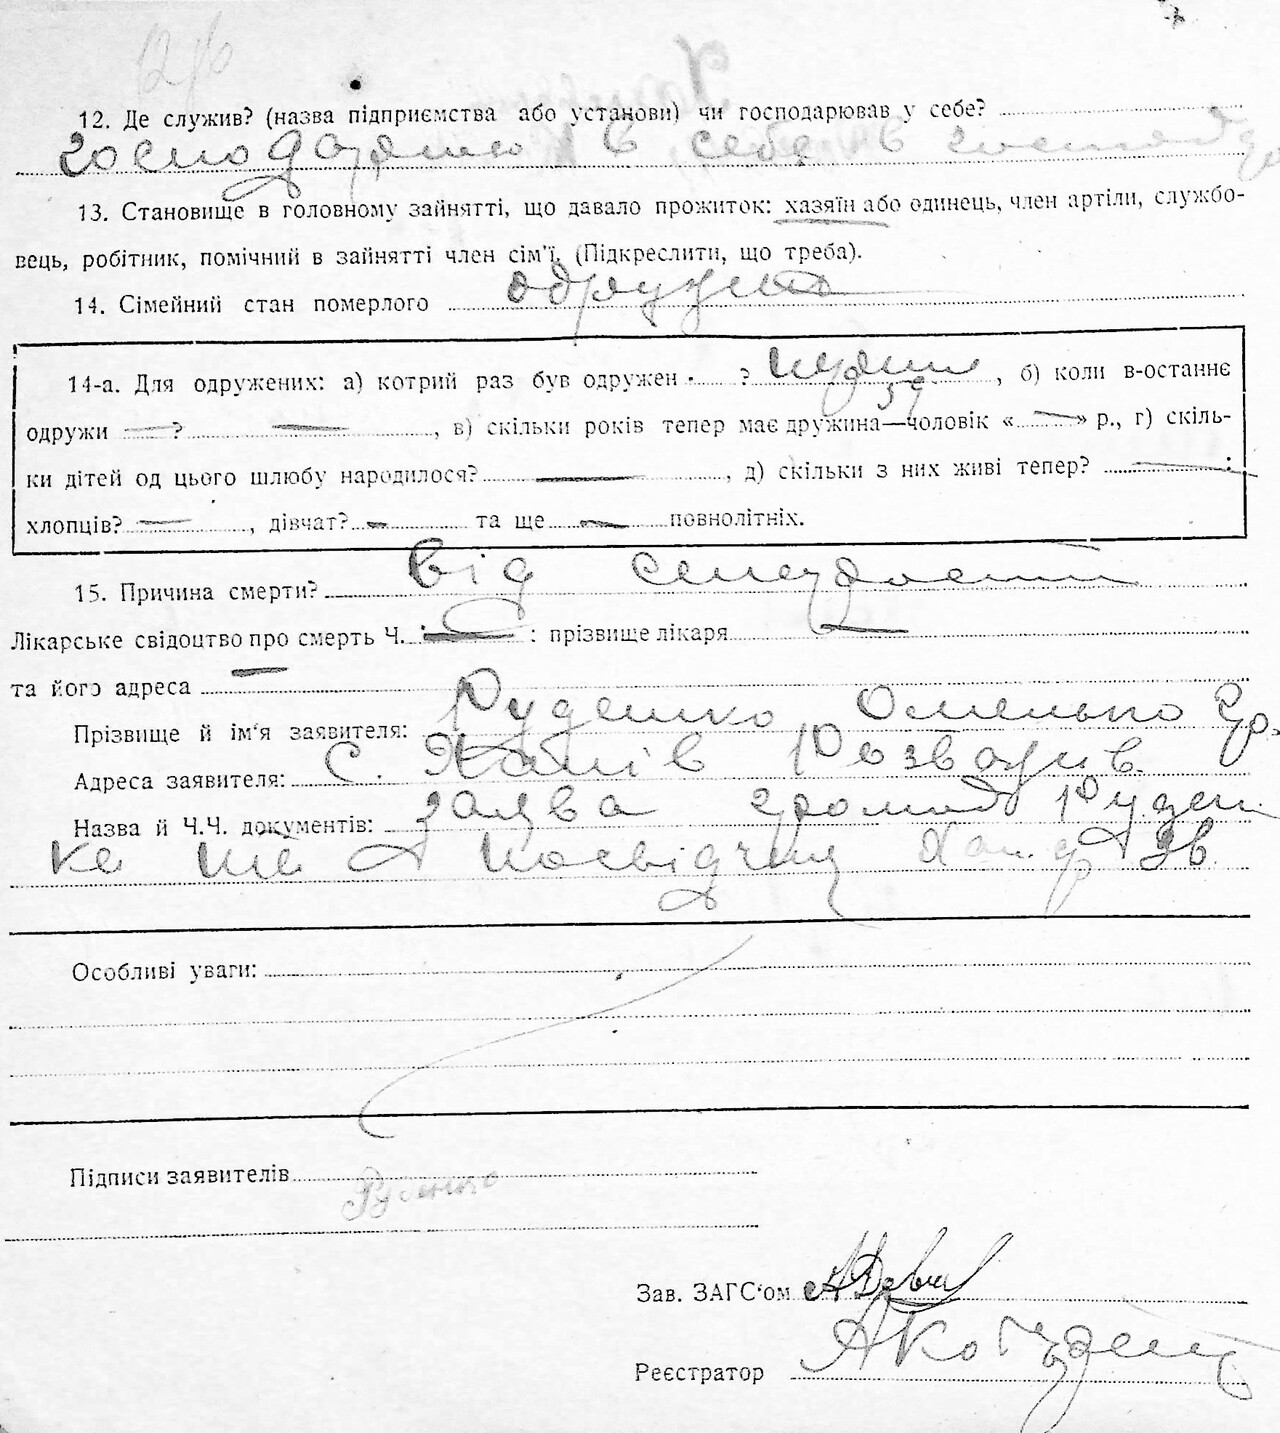 12. Де служив? (назва підприємства або установи) чи господарював у себе?
в себе в
13. Становище в головному зайнятті, що давало прожиток: хазяїн або одинець, член артіли, службо-
вець, робітник, помічний в зайнятті член сім'ї. (Підкреслити, що треба).
14. Сімейний стан померлого
14-а. Для одружених: а) котрий раз був одружен ? , б) коли в-останнє
одружи — ? — , в) скільки років тепер має дружина—чоловік «—» р., г) скіль-
ки дітей од цього шлюбу народилося? — , д) скільки з них живі тепер? — :
хлопців? — , дівчат? — та ще — повнолітніх.
15. Причина смерти? Від
Лікарське свідоцтво про смерть Ч. — : прізвище лікаря —
та його адреса —
Прізвище й ім'я заявителя: Руденко Омелько Гр.
Адреса заявителя: с. Розважів.
Назва й Ч.Ч. документів: Заява громад Руден
Особливі уваги:
Підписи заявителів Руденко
Зав. ЗАГС'ом
Реєстратор